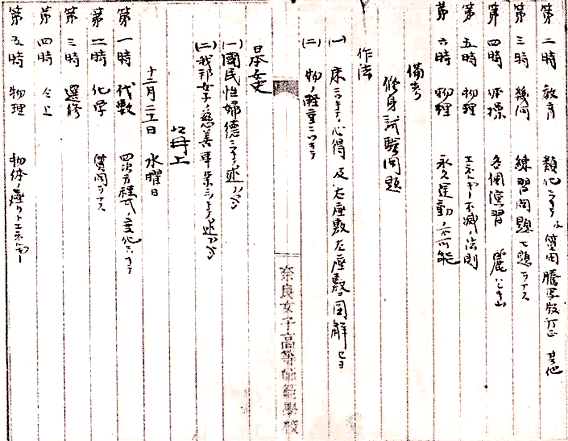 第二時 教育 類化ニツキテ 質問 謄写版訂正 其他
第三時 幾何 練習問題 宿題ヲナス
第四時 体操 各個演習
第五時 物理 エネルギー不滅ノ法則
第六時 物理 永久運動ノ不可能
備考
修身試験問題
作法
(一) 床ニツキテノ心得 及 右座敷左座敷ヲ図解セヨ
(二) 物ノ軽重ニツキテ
奈良女子高等師範學校
日本女史
(一) 國民性婦徳ニツキテ述ベヨ
(二) 我邦女子ノ慈善事業ニツキテ述ベヨ
以上
水曜日
第一時 代数 四次方程式ノ変化ニツキテ
第二時 化学 質問ヲナス
第三時 選修
第四時 仝上
第五時 物理 物体ノ エネルギー